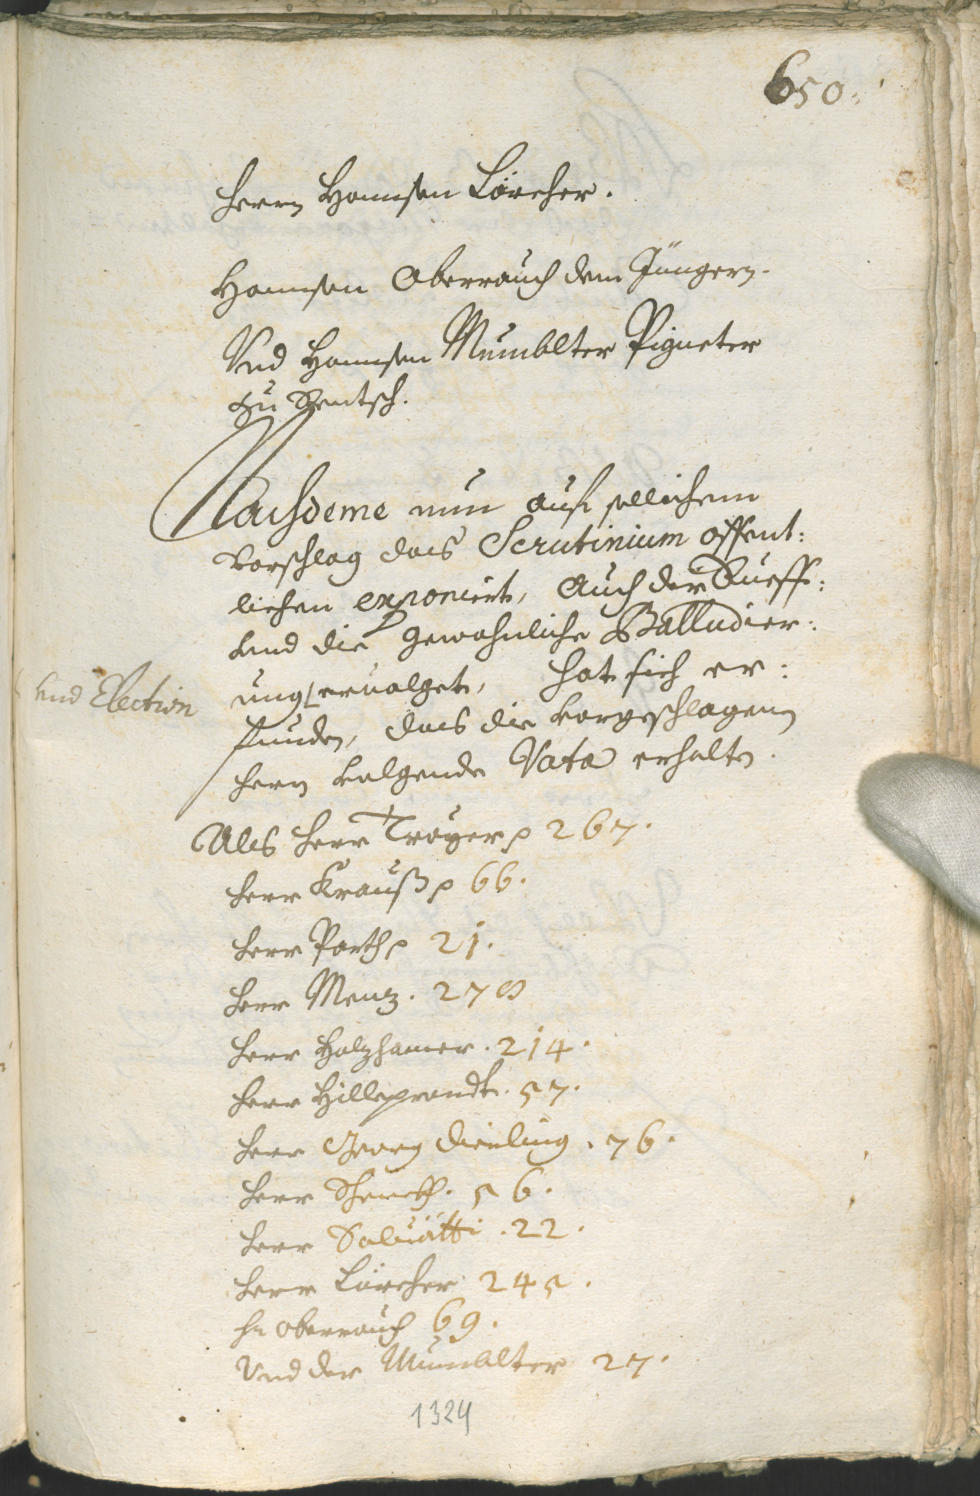 650.
Herrn Hannsen Lörcher.
Hannsen Oberrauch dem Jüngern.
Vnd Hannsen Mumblter Pigneter
zu Rentsch.
Nachdeme nun auf sollichem
vorschlag das Scrutinium offent:
lichen exponiert, Auch der Aueff:
vnd die gewohnliche Balludier:
ung ervolget, hat sich er:
vnd Election
funden, das die vorgeschlagenen
Herrn volgende Vota erhalten.
Als Herr Troyer p 267.
Herr Krauß p 66.
Herr Porth p 21.
Herr Menz. 270
Herr Holzhamer. 214.
Herr Hilleprandt. 57.
Herr Georg Dieling. 76.
Herr Scherekh. 56.
Herr Saluätti. 22.
Herr Lörcher 245.
Hr Oberrauch 69.
Vnd der Mumblter 27.
1324